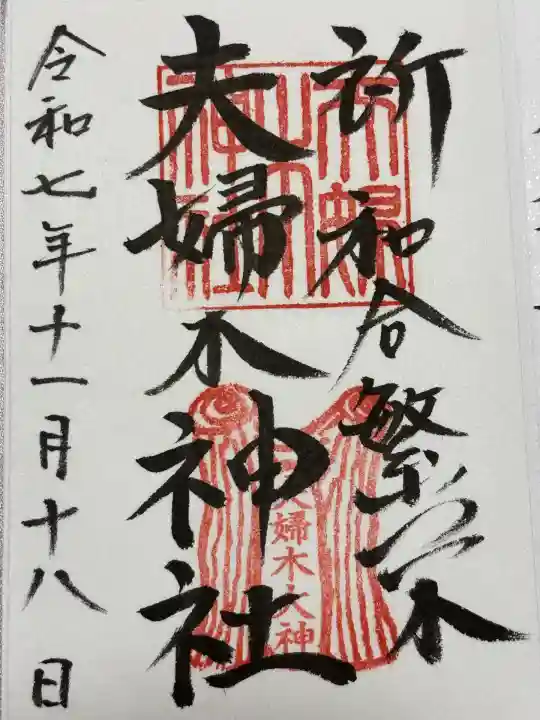 祈和合繁栄
夫婦木神社
令和七年十一月十八日
夫婦木
神社
夫婦木大神